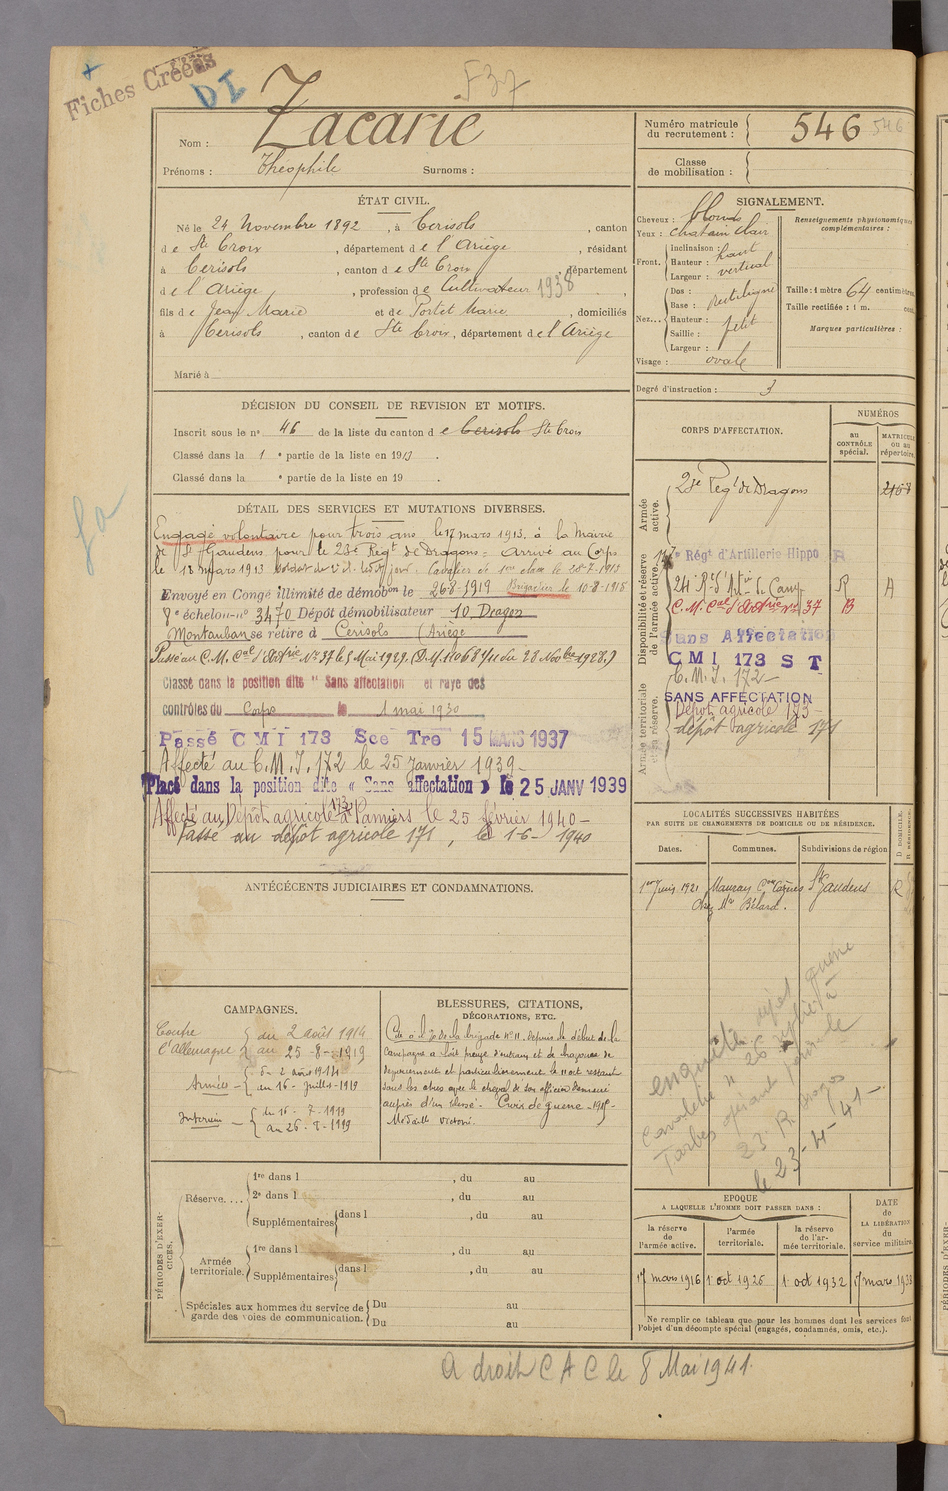 Fiches Créées
DI
F 37
Nom : Zacarie
Prénoms : Théophile Surnoms :
Numéro matricule du recrutement : 546 546
Classe de mobilisation :
ÉTAT CIVIL.
Né le 24 Novembre 1892, à Cerisols, canton
de Ste Croix, département de l'Ariège, résidant
à Cerisols, canton de Ste Croix, département
de l'Ariège, profession de Cultivateur 1938,
fils de Jean Marie et de Portet Marie, domiciliés
à Cerisols, canton de Ste Croix, département de l'Ariège
Marié à
SIGNALEMENT.
Cheveux : blonds
Yeux : chatain clair
Front. Inclinaison : haut
Hauteur : vertical
Largeur :
Nez... Dos : rectiligne
Base :
Hauteur : petit
Saillie :
Largeur :
Visage : ovale
Renseignements physionomiques complémentaires :
Taille : 1 mètre 64 centimètres
Taille rectifiée : 1 m. cent.
Marques particulières :
Degré d'instruction : 3
DÉCISION DU CONSEIL DE REVISION ET MOTIFS.
Inscrit sous le n° 46 de la liste du canton de Cerisols Ste Croix
Classé dans la 1e partie de la liste en 1913.
Classé dans la e partie de la liste en 19 .
DÉTAIL DES SERVICES ET MUTATIONS DIVERSES.
Engagé volontaire pour trois ans le 17 mars 1913 à la Mairie
de St Gaudens pour le 23e Régt de Dragons = Arrivé au Corps
le 18 mars 1913 soldat de 2e cl. Cavalier de 1ère classe le 28-7-1913
Envoyé en Congé illimité de démobon le 26-8-1919 Brigadier le 10-8-1918
8e échelon-n° 3470 Dépôt démobilisateur 10 Dragon
Montauban se retire à Cerisols (Ariège
Passé au C.M. Cal d'Artrie No 37 le 5 Mai 1929. (D.M. 11068 1/11 du 28 Novbre 1928.)
Classé dans la position dite " Sans affectation et rayé des
contrôles du Corps le 1 mai 1930
Passé CMI 173 Sce Tre 15 MARS 1937
Affecté au C.M.I. 172 le 25 janvier 1939-
Placé dans la position dite « Sans affectation » le 25 JANV 1939
Affecté au Dépôt agricole 173 à Pamiers le 25 février 1940-
Passé au dépôt agricole 171, le 1-6-1940
CORPS D'AFFECTATION.
NUMÉROS
au CONTRÔLE spécial.
MATRICULE ou au répertoire.
Armée active.
23e Régt de Dragons
2167
Disponibilité et réserve de l'armée active.
Régt d'Artillerie Hippo R
24 R. d'Artie de Camp R A
C.M. Cal d'Artrie n° 37 B
Sans Affectation
CMI 173 S T
C.M.I. 172-
SANS AFFECTATION
Armée territoriale et sa réserve.
Dépôt agricole 173-
dépôt agricole 171
LOCALITÉS SUCCESSIVES HABITÉES
PAR SUITE DE CHANGEMENTS DE DOMICILE OU DE RÉSIDENCE.
Dates. Communes. Subdivisions de région D DOMICILE. R RÉSIDENCE
1er Juin 1921 Mauran Cne Cazères St Gaudens R
chez Mr Bélard.
ANTÉCÉDENTS JUDICIAIRES ET CONDAMNATIONS.
CAMPAGNES.
Contre l'Allemagne du 2 août 1914
au 25-8-1919
Armée - du 2 août 1914
au 16-Juillet-1919
Intérieur - du 16-7-1919
au 26-8-1919
BLESSURES, CITATIONS, DÉCORATIONS, ETC.
Cité à l'o. de la brigade N° 11. depuis le début de la
Campagne a fait preuve d'entrain et de
dévouement et particulièrement le 11 oct restant
sous les obus avec le cheval de son officier demeuré
auprès d'un blessé. Croix de guerre
Médaille Victoire
enquête dépôt guerre
Cavalerie n° 26
Tarbes
23. R. Dragons
le 23-4-41-
PÉRIODES D'EXERCICES.
Réserve.... 1re dans l , du au
2e dans l , du au
Supplémentaires dans l , du au
Armée territoriale. 1re dans l , du au
Supplémentaires dans l , du au
Spéciales aux hommes du service de garde des voies de communication. Du au
Du au
EPOQUE
A LAQUELLE L'HOMME DOIT PASSER DANS :
la réserve de l'armée active.
l'armée territoriale.
la réserve de l'armée territoriale.
DATE de LA LIBÉRATION du service militaire.
17 mars 1916 1er oct 1926 1er oct 1932 17 mars 193
Ne remplir ce tableau que pour les hommes dont les services font
l'objet d'un décompte spécial (engagés, condamnés, omis, etc.).
A droit C A C le 8 Mai 1941.